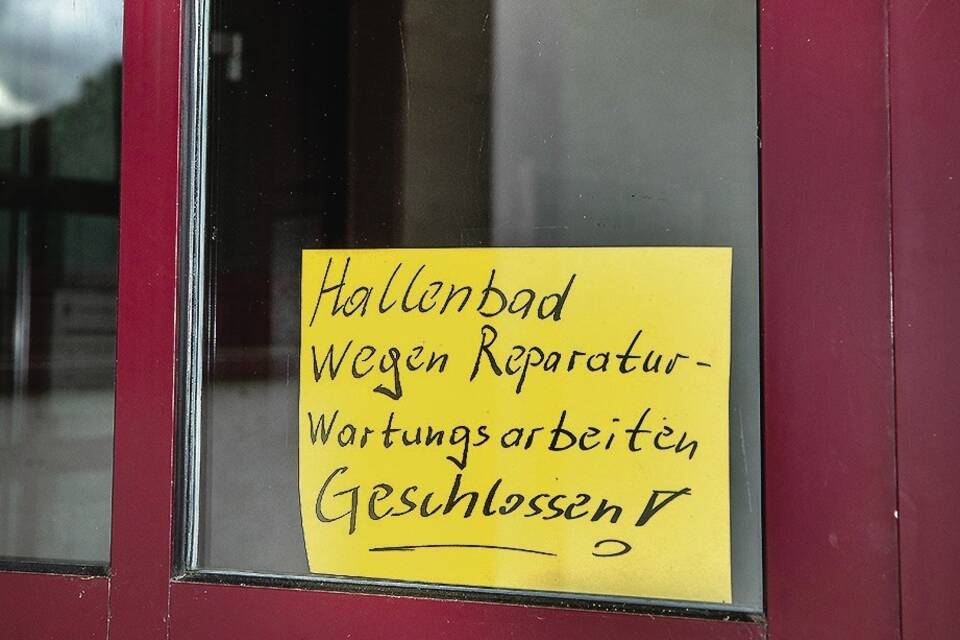 Hallenbad
wegen Reparatur-
Wartungsarbeiten
Geschlossen!